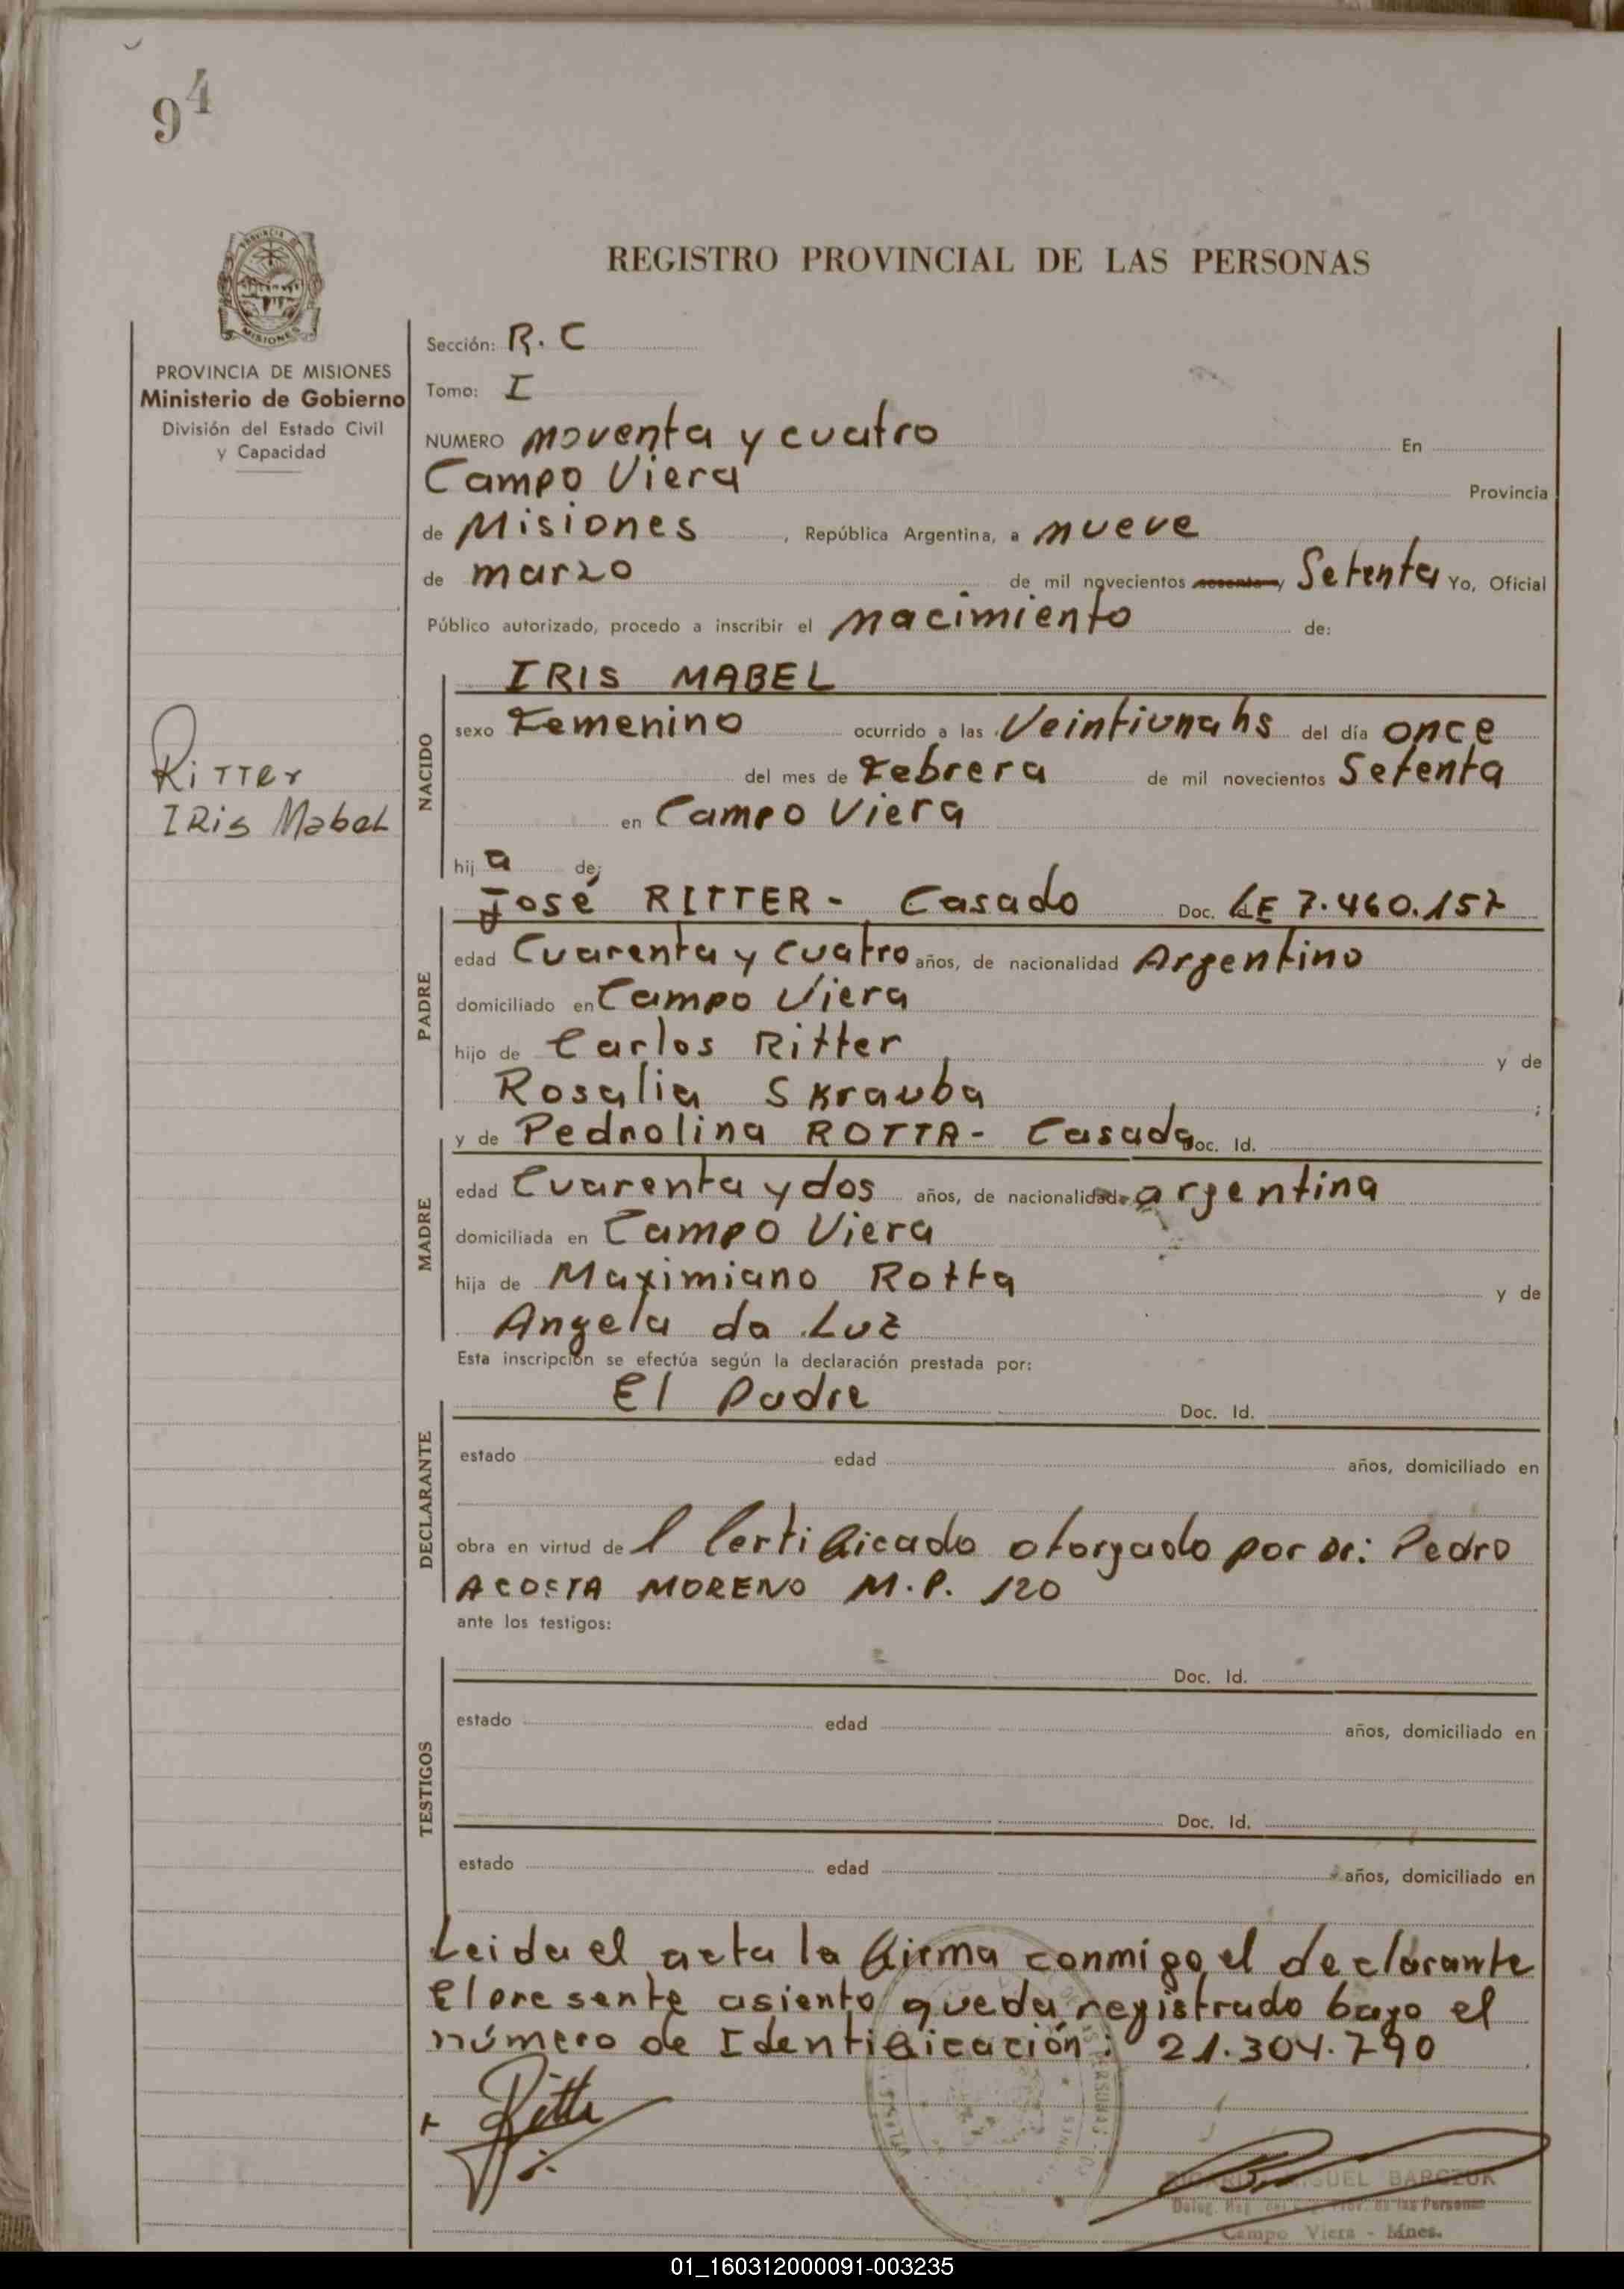 94
REGISTRO PROVINCIAL DE LAS PERSONAS
PROVINCIA DE MISIONES
Ministerio de Gobierno
División del Estado Civil
y Capacidad
Ritter
Iris Mabel
Sección: R. C
Tomo: I
NUMERO noventa y cuatro En
Campo Viera Provincia
de Misiones, República Argentina, a nueve
de marzo de mil novecientos sesenta y Setenta Yo, Oficial
Público autorizado, procedo a inscribir el nacimiento de:
NACIDO
IRIS MABEL
sexo Femenino ocurrido a las Veintiuna hs del día once
del mes de Febrero de mil novecientos Setenta
en Campo Viera
hij a de;
PADRE
José RITTER - Casado Doc. LE 7.460.157
edad Cuarenta y cuatro años, de nacionalidad Argentino
domiciliado en Campo Viera
hijo de Carlos Ritter y de
Rosalia Skrauba ;
MADRE
y de Pedrolina ROTTA - Casada Doc. Id.
edad Cuarenta y dos años, de nacionalidad argentina
domiciliada en Campo Viera
hija de Maximiano Rotta y de
Angela da Luz
Esta inscripción se efectúa según la declaración prestada por:
DECLARANTE
El Padre Doc. Id.
estado edad años, domiciliado en
obra en virtud de l Certificado otorgado por Dr: Pedro
ACOSTA MORENO M.P. 120
ante los testigos:
TESTIGOS
Doc. Id.
estado edad años, domiciliado en
Doc. Id.
estado edad años, domiciliado en
Leida el acta la firma conmigo el declarante
El presente asiento queda registrado bajo el
número de Identificación: 21.304.790
Ritter
MIGUEL BARCZUK
Campo Viera - Mnes.
01_160312000091-003235